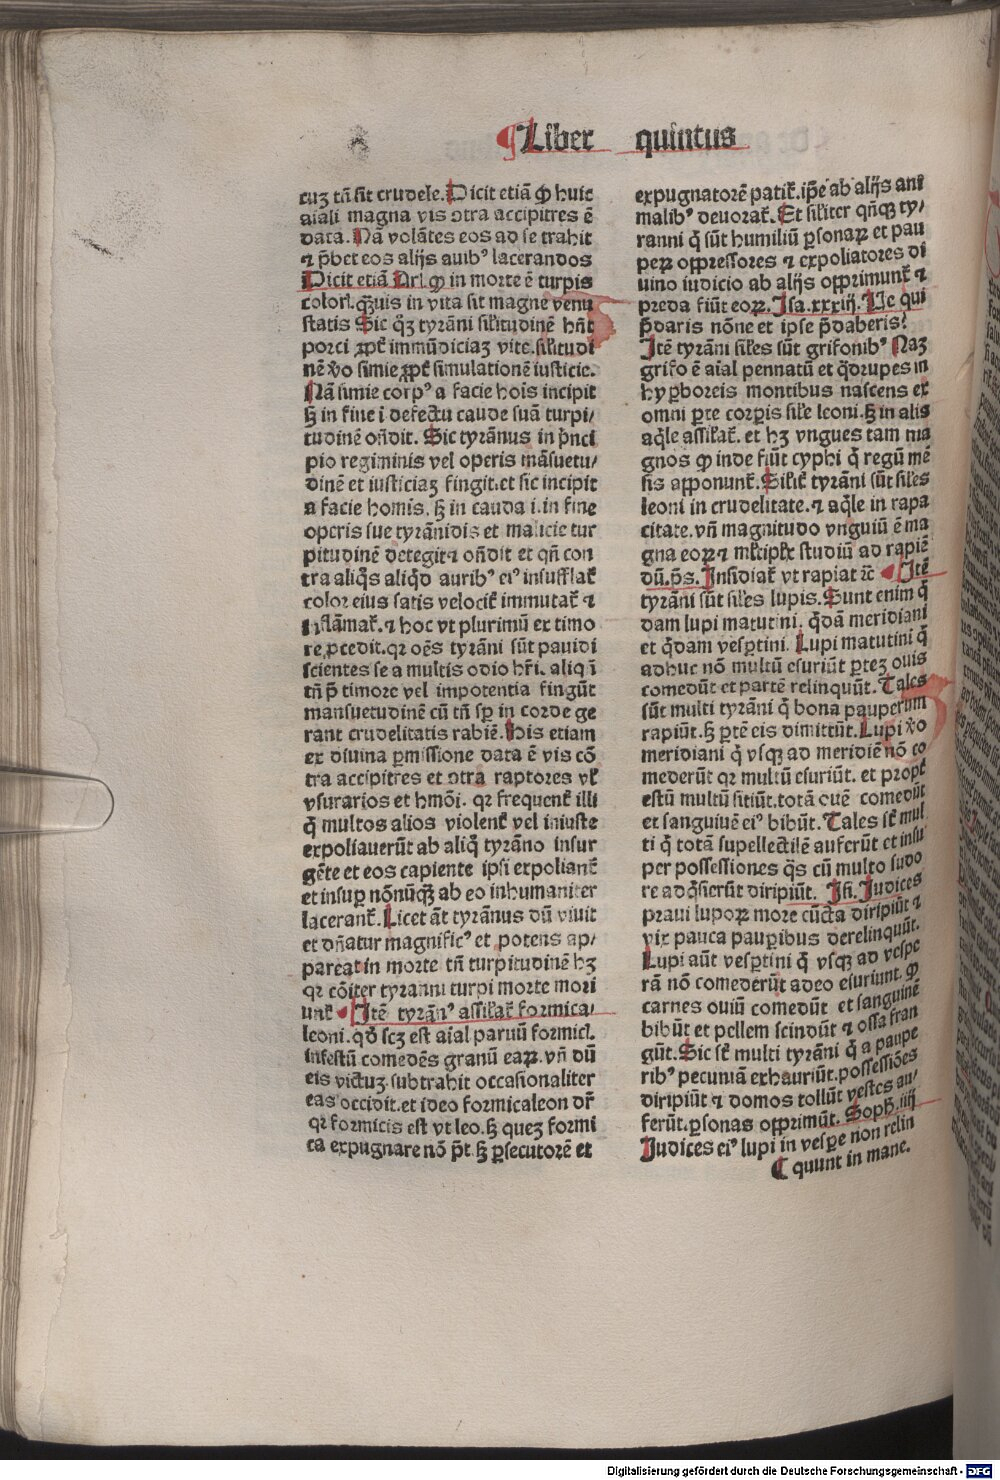 Liber quintus
cuʒ tñ sit crudele. Dicit etiã ꝙ huic
aiali magna vis ↄtra accipitres ē
data. Nã volãtes eos ad se trahit
⁊ p̄bet eos alijs auibꝰ lacerandos
Dicit etiã Arl. ꝙ in morte ē turpis
colorꝭ. qꝫuis in vita sit magne venu
statis Sic qͦʒ tyrãni silꝭitudinē hñt
porci ꝓpꝭ immũdiciaʒ vite. silꝭitudi
nē ꝟo simie ꝓpꝭ simulationē iusticie.
Nã simie corpꝰ a facie hoīs incipit
ꜩ in fine ī defectu caude suã turpi/
tudinē oñdit. Sic tyrãnus in p̄nci
pio regiminis vel operis mãsuetu/
dinē et iusticiaʒ fingit. et sic incipit
a facie homis. ꜩ in cauda i. in fine
operis sue tyrãnidis et malicie tur
pitudinē detegit ⁊ oñdit et qñ con
tra aliqͦs aliqͦd auribꝰ eiꝰ insufflat̄
color eius satis velocit̄ immutat̄ ⁊
īflãmat̄. ⁊ hoc vt plurimũ ex timo
re ꝓcedit. qꝛ oēs tyrãni sũt pauidi
scientes se a multis odio hr̃i. aliq̄ ī
tñ p̄ timore vel impotentia fingũt
mansuetudinē cũ tñ sꝑ in corde ge
rant crudelitatis rabiē. His etiam
ex diuina ꝑmissione data ē vis cõ
tra accipitres et ↄtra raptores vꝉ
vsurarios et hmõi. qꝛ frequent̄ illi
q̄ multos alios violent̄ vel iniuste
expoliauerũt ab aliqͦ tyrãno insur
gēte et eos capiente ipsi expoliant̄
et insuꝑ nõnũqꝫ ab eo inhumaniter
lacerant̄. Licet ãt tyrãnus dũ viuit
et dñatur magnificꝰ et potens ap/
pareat in morte tñ turpitudinē hʒ
qꝛ cõiter tyranni turpi morte mori
unt̄ Itē tyrãnꝰ assilꝭat̄ formica/
leoni. qͦd scʒ est aīal paruũ formicꝭ.
infestũ comedēs granũ eaꝝ. vñ dũ
eis victuʒ subtrahit occasionaliter
eas occidit. et ideo formicaleon dr̃
qꝛ formicis est vt leo. ꜩ queʒ formi
ca expugnare nõ p̄t. ꜩ ꝑsecutorē et
expugnatorē patit̄. ip̄e ab alijs ani
malibꝰ deuorat̄. Et silꝭiter qñqꝫ ty/
ranni q̄ sũt humiliũ ꝑsonaꝝ et pau
peꝝ oppressores ⁊ expoliatores di
uino iudicio ab alijs opprimunt̄ ⁊
preda fiũt eoꝝ. Isa. xxxiij. Ve qui
p̄daris nõne et ipse p̄daberis?
Itē tyrãni silꝭes sũt grifonibꝰ Naʒ
grifo ē aīal pennatũ et qͣdrupes in
hyꝑboreis montibus nascens ex
omni ꝑte corꝑis silꝭe leoni. ꜩ in alis
aqͥle assilꝭat̄. et hʒ vngues tam ma
gnos ꝙ inde fiũt cyphi q̄ regũ mē
sis apponunt̄. Silꝭit̄ tyrãni sũt silꝭes
leoni in crudelitate. ⁊ aqͥle in rapa
citate. vñ magnitudo vnguiũ ē ma
gna eoꝝ ⁊ mꝉtiplex studiũ ad rapiē
dũ. p̄s. Insidiat̄ vt rapiat ⁊c̄ Itē
tyrãni sũt silꝭes lupis. Sunt enim q̄
dam lupi matutini. qͥdã meridiani
et qͥdam vesꝑtini. Lupi matutini q̄
adhuc nõ multũ esuriũt ꝑteʒ ouis
comedũt et partē relinquũt. Tales
sũt multi tyrãni q̄ bona pauperum
rapiũt. ꜩ ꝑtē eis dimittũt. Lupi ꝟo
meridiani q̄ vsqꝫ ad meridiē nõ co
mederũt qꝛ multũ esuriũt. et propt̄
estũ multũ sitiũt. totã ouē comedũt
et sanguinē eiꝰ bibũt. Tales st̄ mul
ti q̄ totã supellectilē auferũt et insu
per possessiones qͣs cũ multo sudo
re adqͥsierũt diripiũt. Isi. Judices
praui lupoꝝ more cũcta diripiũt ⁊
vix pauca pauꝑibus derelinquũt.
Lupi aũt vesꝑtini q̄ vsqꝫ ad vespe
rã nõ comederũt adeo esuriunt. ꝙ
carnes ouiũ comedũt et sanguinē
bibũt et pellem scindũt ⁊ ossa fran
gũt. Sic st̄ multi tyrãni q̄ a paupe
ribꝰ pecuniã exhauriũt. possessiões
diripiũt ⁊ domos tollũt vestes au/
ferũt. ꝑsonas opprimũt. Soph. iij
Judices eiꝰ lupi in vesꝑe non relin
quunt in mane.
Digitalisierung gefördert durch die Deutsche Forschungsgemeinschaft - DFG